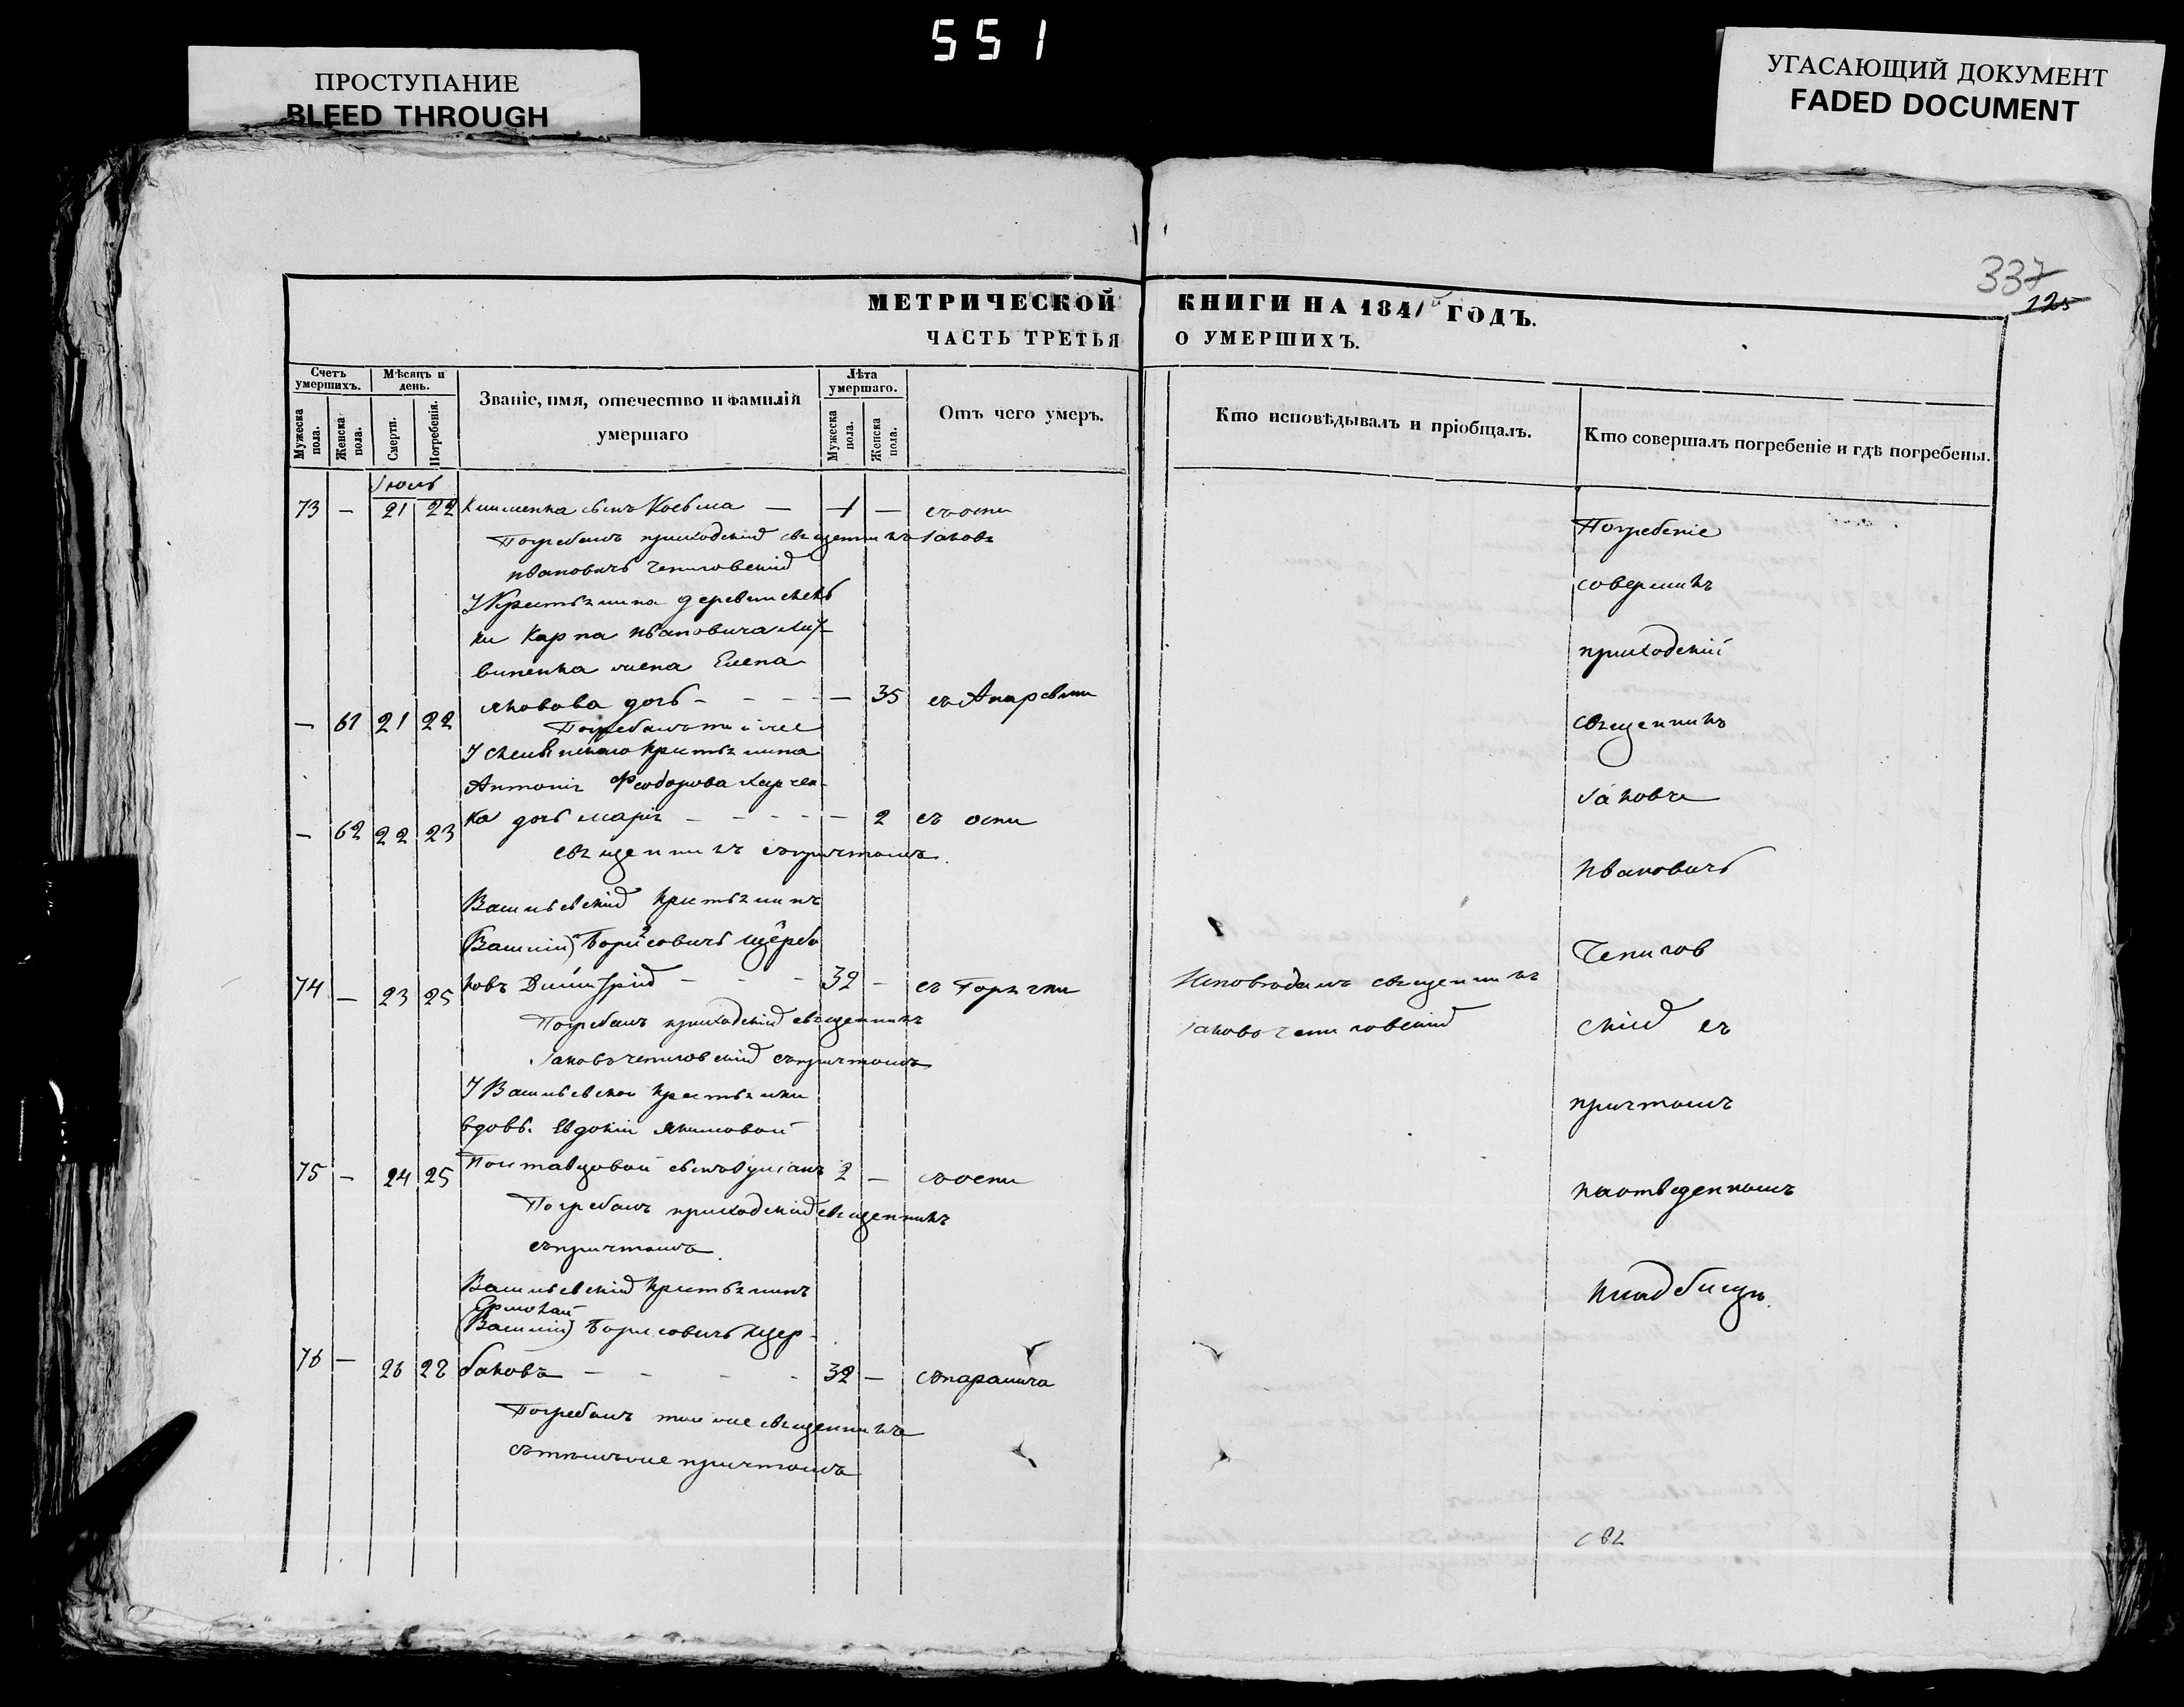 551
ПРОСТУПАНИЕ
BLEED THROUGH
УГАСАЮЩИЙ ДОКУМЕНТ
FADED DOCUMENT
337
125
МЕТРИЧЕСКОЙ КНИГИ НА 1841й ГОДЪ.
ЧАСТЬ ТРЕТЬЯ О УМЕРШИХЪ.
Счетъ умершихъ.
Мужеска пола.
Женска пола.
Мѣсяцъ и день.
Смерти.
Погребенія.
Званіе, имя, отечество и фамилія умершаго
Лѣта умершаго.
Мужеска пола.
Женска пола.
Отъ чего умеръ.
Кто исповѣдывалъ и пріобщалъ.
Кто совершалъ погребеніе и гдѣ погребены.
Іюль
73 — 21 22 сынъ Косьма — 1 — съ оспи
Погребалъ приходскій священникъ Іаковъ
Ивановичъ Чепиговскій
У Крестьянина
Карпа Ивановича Лит-
виненка жена Елена
— 61 21 22 Яковова дочь — — 35
Погребалъ той же
У крестьянина
Антонія Феодорова Харчен-
— 62 22 23 ка дочь Марія — — 2 съ оспи
священникъ съ причтомъ.
Васильевскій крестьянинъ
(Василій) Борисовичъ Щерба
74 — 23 25 ковъ Димитрій — 32 — съ Горячки
Погребалъ приходскій священникъ
Іаковъ Чепиговскій съ причтомъ
У Васильевской крестьянки
вдовы Евдокіи Якимовой
75 — 24 25 сынъ 2 — съ оспи
Погребалъ приходскій священникъ
съ причтомъ.
Васильевскій крестьянинъ
Ермолай
(Василій) Борисовичъ Щер-
76 — 26 28 баковъ — 32 — съ паралича
Погребалъ той же священникъ
съ тѣмъ же причтомъ
Исповѣдалъ священникъ
Іаковъ Чепиговскій
Погребеніе
совершилъ
приходскій
священникъ
Іаковъ
Ивановичъ
Чепигов
скій съ
причтомъ
на отведенномъ
кладбищѣ.